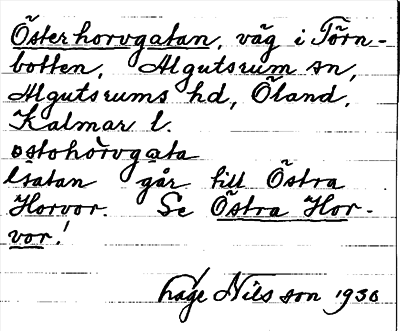 Österhorvgatan, väg i Törn-
botten, Algutsrum sn,
Algutsrums hd, Öland,
Kalmar l.
ostohòrvgata
Gatan går till Östra
Horvor. Se Östra Hor-
vor!
Håge Nilsson 1930